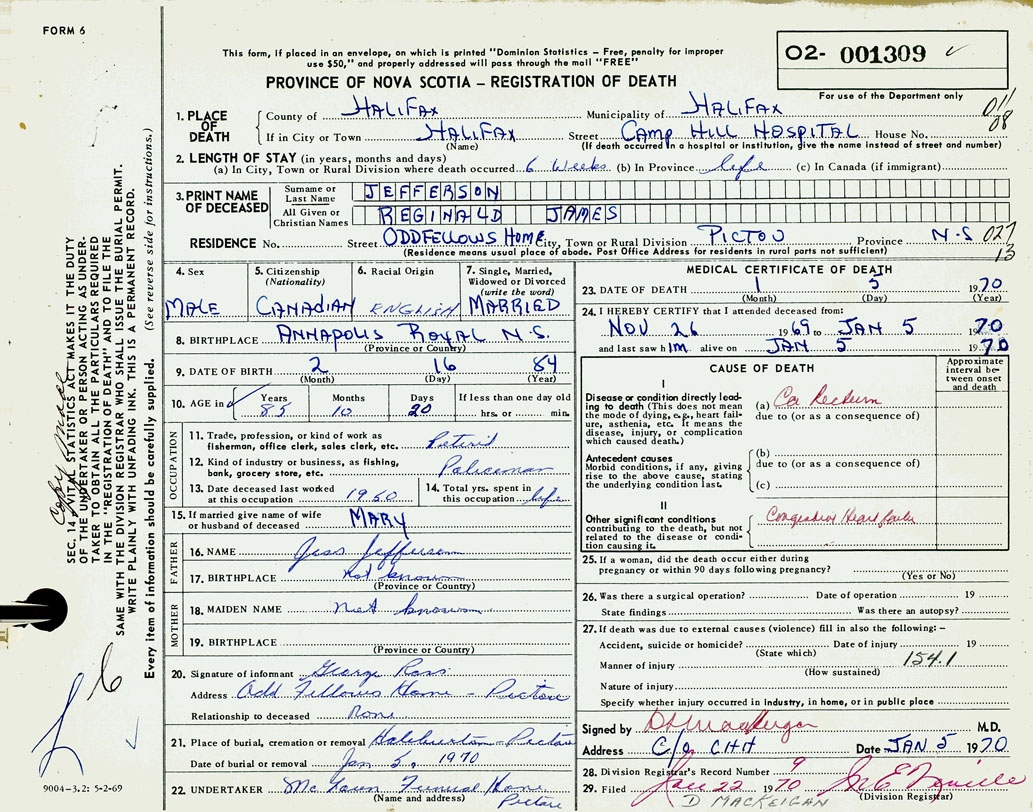 FORM 6
This form, if placed in an envelope, on which is printed "Dominion Statistics – Free, penalty for improper
use $50," and properly addressed will pass through the mail "FREE"
O2- 001309 ✓
PROVINCE OF NOVA SCOTIA – REGISTRATION OF DEATH
For use of the Department only
011
08
1. PLACE OF DEATH County of HALIFAX Municipality of HALIFAX
If in City or Town HALIFAX Street CAMP HILL HOSPITAL House No.
(Name) (If death occurred in a hospital or institution, give the name instead of street and number)
2. LENGTH OF STAY (in years, months and days)
(a) In City, Town or Rural Division where death occurred 6 Weeks (b) In Province life (c) In Canada (if immigrant)
3. PRINT NAME OF DECEASED Surname or Last Name JEFFERSON
All Given or Christian Names REGINALD JAMES
RESIDENCE No. Street ODDFELLOWS HOME City, Town or Rural Division PICTOU Province N-S 027
13
(Residence means usual place of abode. Post Office Address for residents in rural parts not sufficient)
4. Sex MALE
5. Citizenship (Nationality) CANADIAN
6. Racial Origin ENGLISH
7. Single, Married, Widowed or Divorced (write the word) MARRIED
8. BIRTHPLACE ANNAPOLIS ROYAL N.S.
(Province or Country)
9. DATE OF BIRTH 2 16 84
(Month) (Day) (Year)
10. AGE in Years 85 Months 10 Days 20 If less than one day old hrs. or min.
OCCUPATION
11. Trade, profession, or kind of work as
fisherman, office clerk, sales clerk, etc. Retired
12. Kind of industry or business, as fishing,
bank, grocery store, etc. Policeman
13. Date deceased last worked
at this occupation 1950
14. Total yrs. spent in
this occupation life
15. If married give name of wife
or husband of deceased MARY
FATHER
16. NAME Jefferson
17. BIRTHPLACE not known
(Province or Country)
MOTHER
18. MAIDEN NAME not known
19. BIRTHPLACE
(Province or Country)
20. Signature of informant George Ross
Address Odd Fellows Home - Pictou
Relationship to deceased None
21. Place of burial, cremation or removal Haliburton - Pictou
Date of burial or removal Jan 5, 1970
22. UNDERTAKER Funeral Home
(Name and address) Pictou
MEDICAL CERTIFICATE OF DEATH
23. DATE OF DEATH 1 5 1970
(Month) (Day) (Year)
24. I HEREBY CERTIFY that I attended deceased from:
NOV 26 1969 to JAN 5 1970
and last saw him alive on JAN 5 1970
CAUSE OF DEATH
Approximate interval between onset and death
I
Disease or condition directly leading
to death (This does not mean
the mode of dying, e.g., heart failure,
asthenia, etc. It means the
disease, injury, or complication
which caused death.)
(a) Ca Rectum
due to (or as a consequence of)
Antecedent causes
Morbid conditions, if any, giving
rise to the above cause, stating
the underlying condition last.
(b)
due to (or as a consequence of)
(c)
II
Other significant conditions
contributing to the death, but not
related to the disease or condition
causing it.
Congestive Heart Failure
25. If a woman, did the death occur either during
pregnancy or within 90 days following pregnancy?
(Yes or No)
26. Was there a surgical operation? Date of operation 19
State findings Was there an autopsy?
27. If death was due to external causes (violence) fill in also the following: –
Accident, suicide or homicide? Date of injury 19
(State which)
Manner of injury 154.1
(How sustained)
Nature of injury
Specify whether injury occurred in industry, in home, or in public place
Signed by M.D.
Address C/O CHH Date JAN 5 1970
28. Division Registrar's Record Number 9
29. Filed Jan 22 1970
(Division Registrar)
D MACKEIGAN
SEC. 14 VITAL STATISTICS ACT MAKES IT THE DUTY
OF THE UNDERTAKER OR PERSON ACTING AS UNDERTAKER
TO OBTAIN ALL THE PARTICULARS REQUIRED
IN THE "REGISTRATION OF DEATH" AND TO FILE THE
SAME WITH THE DIVISION REGISTRAR WHO SHALL ISSUE THE BURIAL PERMIT.
WRITE PLAINLY WITH UNFADING INK. THIS IS A PERMANENT RECORD.
Every item of information should be carefully supplied. (See reverse side for instructions.)
9004-3.2: 5-2-69